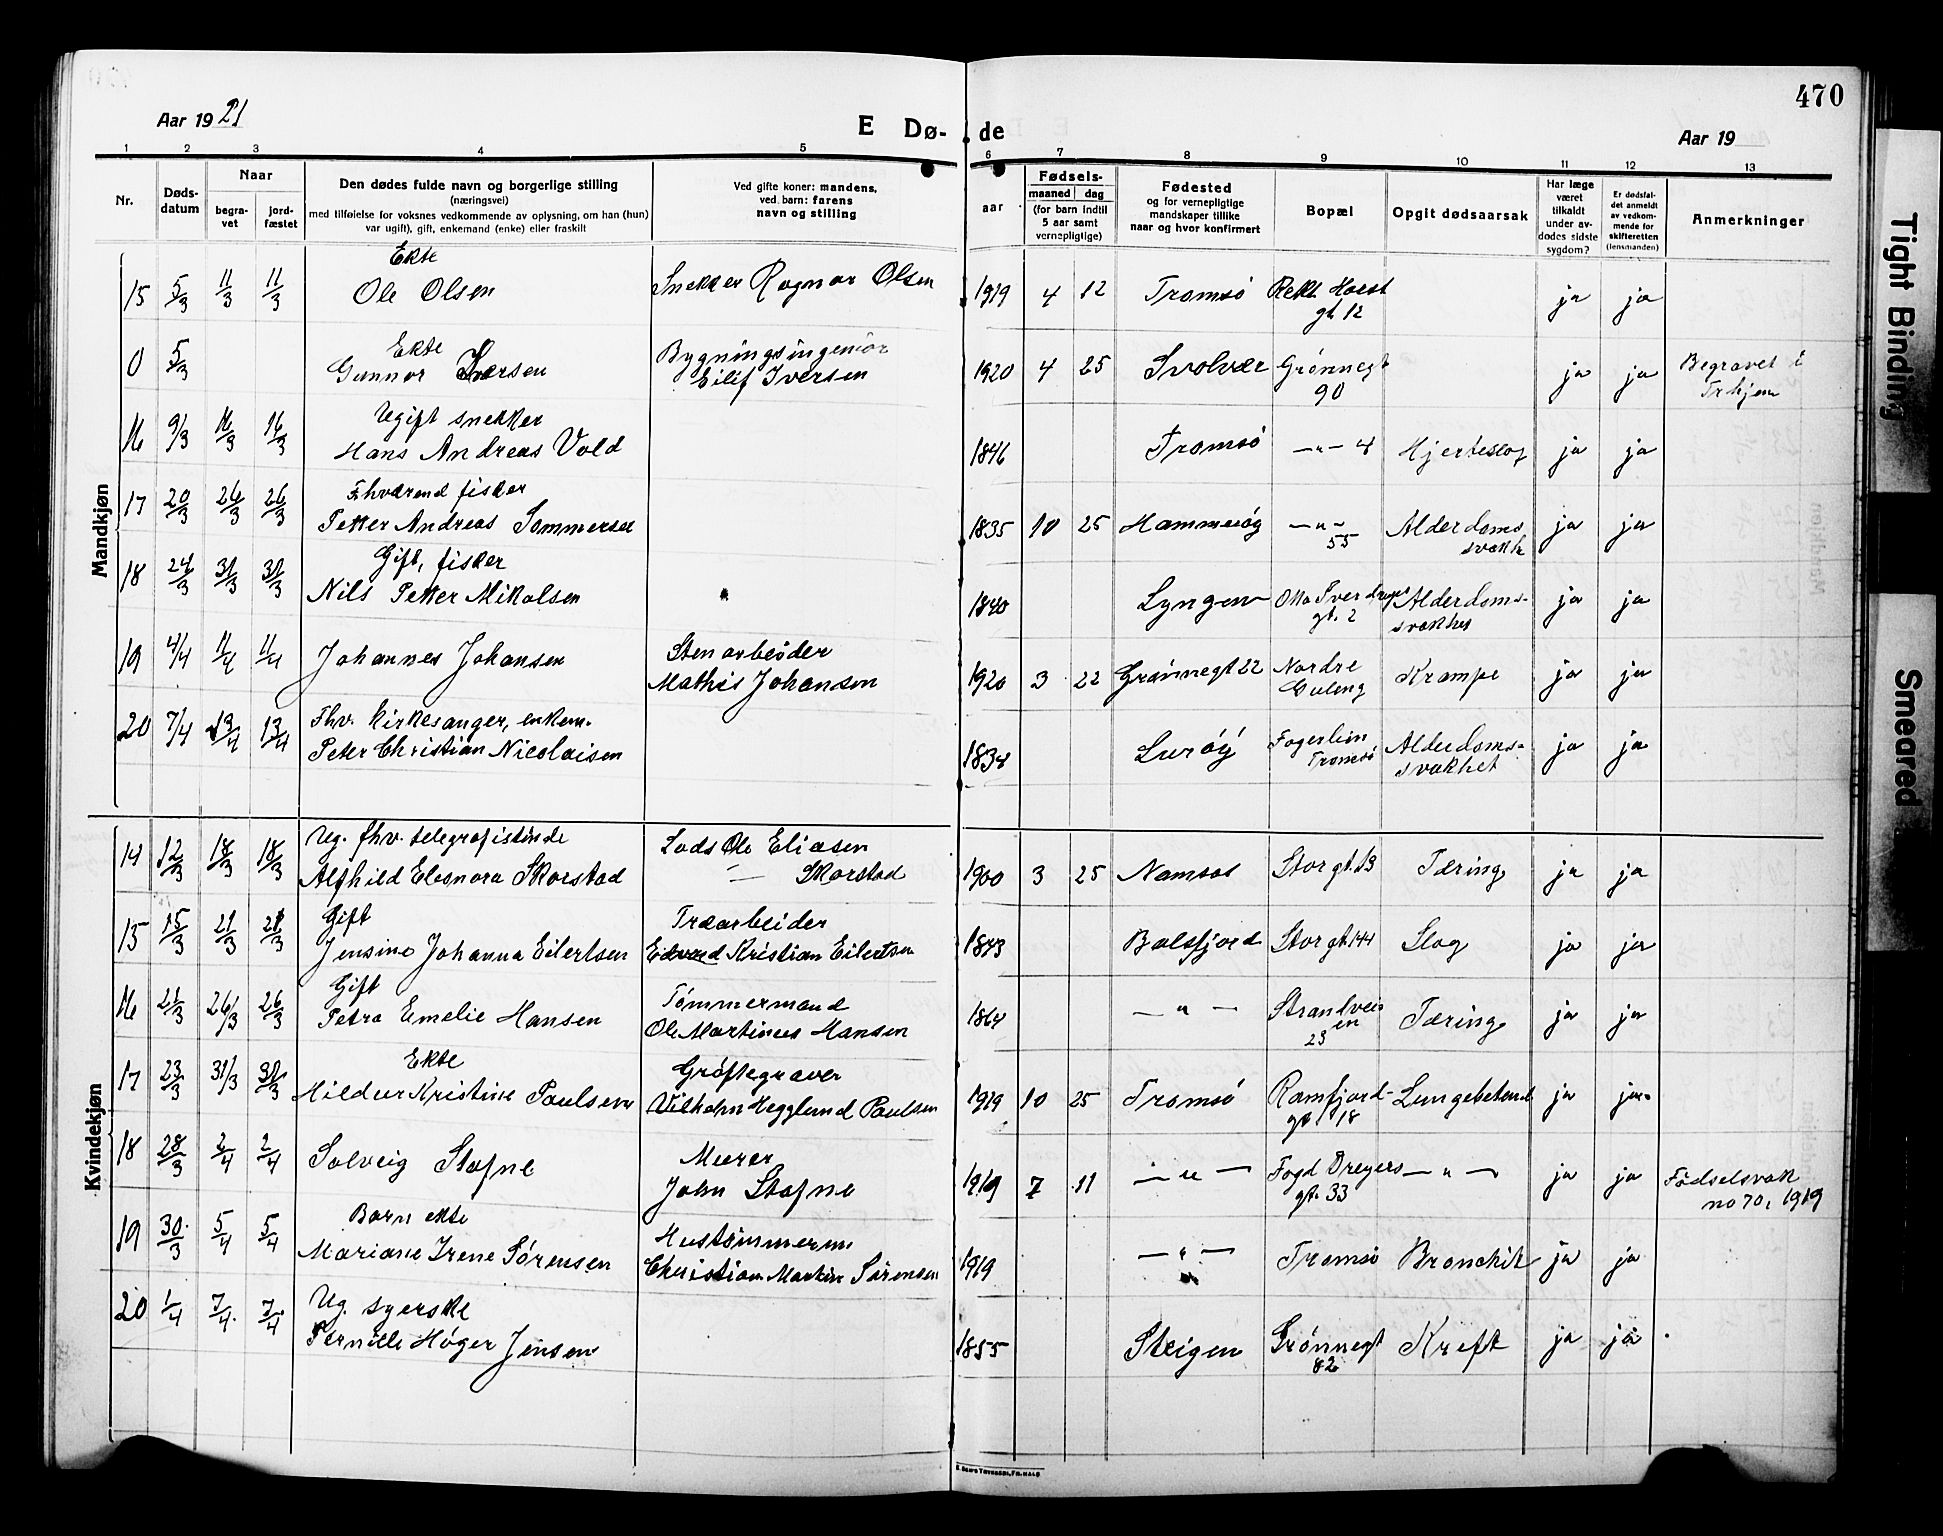 470
Aar 1921
E Dø-
de
Aar 19
1 2 3 4 5 6 7 8 9 10 11 12 13
Nr.
Døds-
datum
Naar
begra-
vet
jord-
fæstet
Den dødes fulde navn og borgerlige stilling
(næringsvei)
med tilføielse for voksnes vedkommende av oplysning, om han (hun)
var ugift), gift, enkemand (enke) eller fraskilt
Ved gifte koner: mandens,
ved barn: farens
navn og stilling
Fødsels-
aar
maaned dag
(for barn indtil
5 aar samt
vernepligtige)
Fødested
og for vernepligtige
mandskaper tillike
naar og hvor konfirmert
Bopæl
Opgit dødsaarsak
Har læge
været
tilkaldt
under av-
dødes sidste
sygdom?
Er dødsfal-
det anmeldt
av vedkom-
mende for
skifteretten
(lensmanden)
Anmerkninger
Mandkjøn
Ekte
15 5/3 11/3 11/3 Ole Olsen Snekker Ragnar Olsen 1919 4 12 Tromsø Rekt. Horst
gt. 12 ja ja
Ekte Bygningsingeniør
0 5/3 Gunnar Iversen Eilif Iversen 1920 4 25 Svolvær Grønnegt
90 ja ja Begravet i
Trhjem
Ugift snekker
16 9/3 16/3 16/3 Hans Andreas Vold 1846 Tromsø —"— 4 Hjerteslag ja ja
Fhværend fisker
17 20/3 26/3 26/3 Petter Andreas Sommersel 1835 10 25 Hammerøy —"—
55 Alderdoms
svakh. ja ja
Gift, fisker
18 24/3 31/3 31/3 Nils Petter Mikalsen 1840 Lyngen Otto Sverdrups
gt. 2 Alderdoms-
svakhet ja ja
Stenarbeider
19 4/4 11/4 11/4 Johannes Johansen Mathis Johansen 1920 3 22 Grønnegt 22 Nordre
Guleng Krampe ja ja
Fhv. kirkesanger, enkem.
20 7/4 13/4 13/4 Peter Christian Nicolaisen 1834 Lurøy Fagerlien
Tromsø Alderdoms-
svakhet ja ja
Kvindekjøn
Ug. fhv. telegrafistinde Lods Ole Eliasen
14 12/3 18/3 18/3 Alfhild Eleonora Skorstad — Skorstad 1900 3 25 Namsos Storgt. 13 Tæring ja ja
Gift Træarbeider
15 15/3 21/3 21/3 Jensine Johanna Eilertsen Edvard Kristian Eilertsen 1843 Balsfjord Storgt 144 Slag ja ja
Gift Tømmermand
16 21/3 26/3 26/3 Petra Emelie Hansen Ole Martinus Hansen 1864 —"— Strandvei
en
23 Tæring ja ja
Ekte Grøftegraver
17 23/3 31/3 31/3 Hildur Kristine Paulsen Vilhelm Hegglund Paulsen 1919 10 25 Tromsø Ramfjord-
gt 18 Lungebetend ja ja
Murer
18 28/3 2/4 2/4 Solveig Stafne John Stafne 1919 7 11 —"— Fogd Dreyers
gt. 33 —"— ja ja Fødselsvak
no 70, 1919
Barn ekte Hustømmerm
19 30/3 5/4 5/4 Mariane Irene Sørensen Christian Martin Sørensen 1919 —"— Tromsø Bronchit ja ja
Ug. syerske
20 1/4 7/4 7/4 Pernille Høger Jensen 1855 Steigen Grønnegt
82 Kreft ja ja
Tight Binding
Smeared